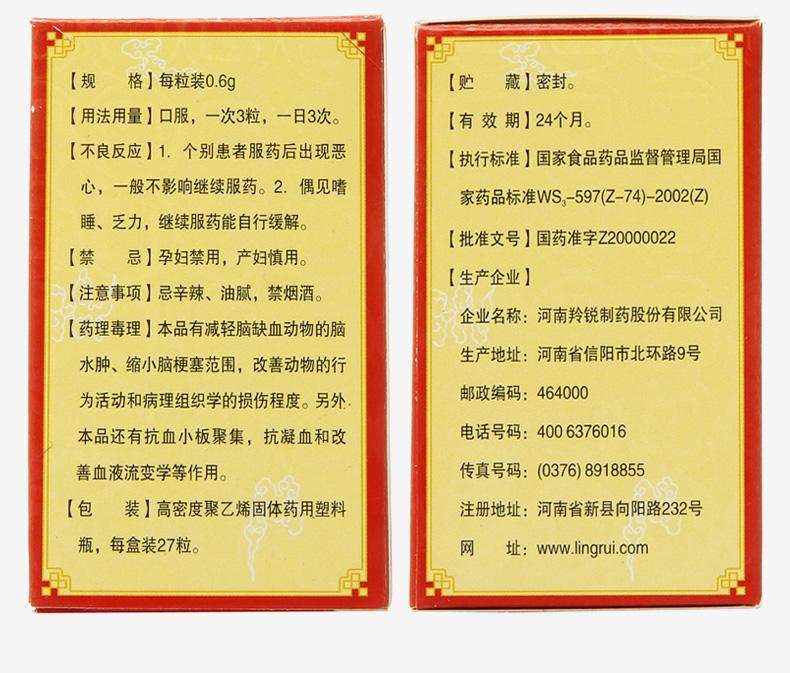 【规　　格】每粒装0.6g
【用法用量】口服，一次3粒，一日3次。
【不良反应】1. 个别患者服药后出现恶
心，一般不影响继续服药。2. 偶见嗜
睡、乏力，继续服药能自行缓解。
【禁　　忌】孕妇禁用，产妇慎用。
【注意事项】忌辛辣、油腻，禁烟酒。
【药理毒理】本品有减轻脑缺血动物的脑
水肿、缩小脑梗塞范围，改善动物的行
为活动和病理组织学的损伤程度。另外
本品还有抗血小板聚集，抗凝血和改
善血液流变学等作用。
【包　　装】高密度聚乙烯固体药用塑料
瓶，每盒装27粒。
【贮　　藏】密封。
【有 效 期】24个月。
【执行标准】国家食品药品监督管理局国
家药品标准WS₃-597(Z-74)-2002(Z)
【批准文号】国药准字Z20000022
【生产企业】
企业名称：河南羚锐制药股份有限公司
生产地址：河南省信阳市北环路9号
邮政编码：464000
电话号码：400 6376016
传真号码：(0376) 8918855
注册地址：河南省新县向阳路232号
网　　址：www.lingrui.com